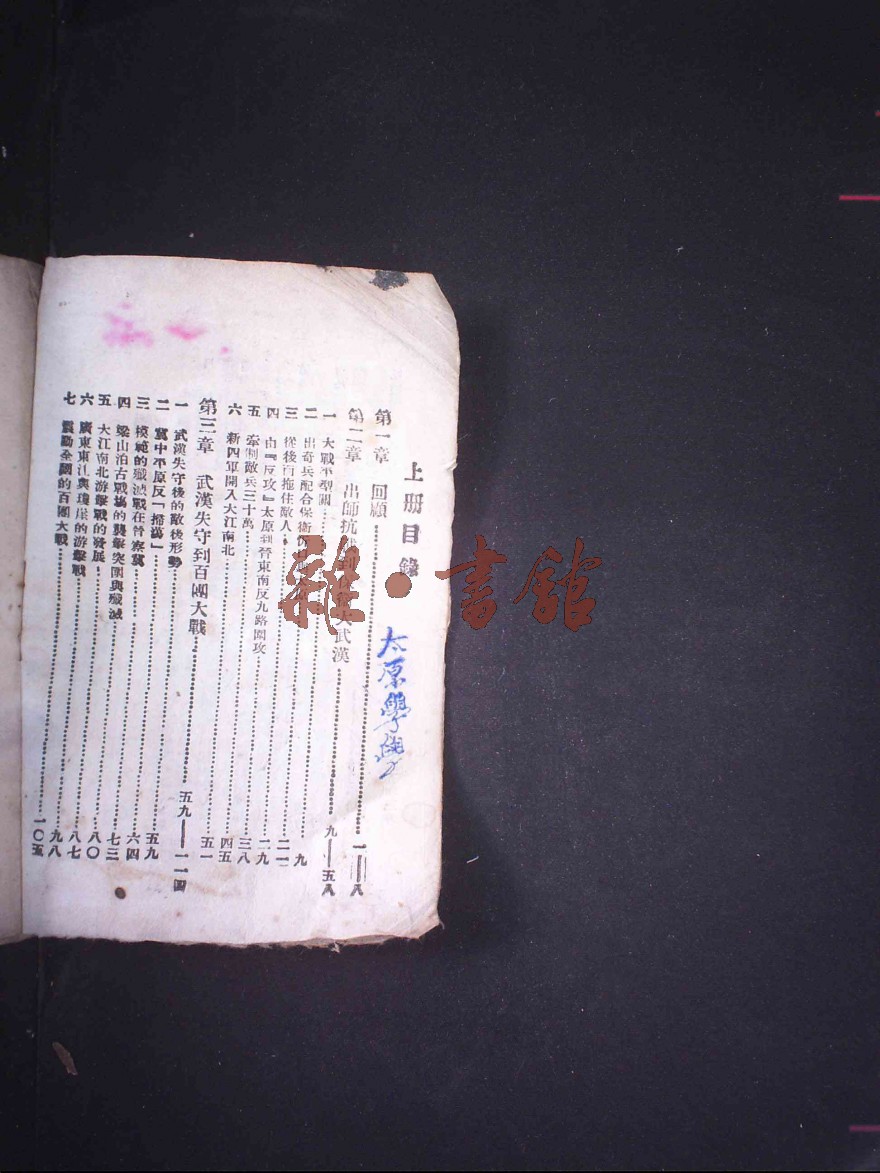 上册目錄
第一章 回顧……一——八
第二章 出師抗戰到保衛大武漢……九——五八
一 大戰平型關……九
二 出奇兵配合保衛……二一
三 從後面拖住敵人……二九
四 由『反攻』太原到晉東南反九路圍攻……三八
五 牽制敵兵三十萬……四五
六 新四軍開入大江南北……五一
第三章 武漢失守到百團大戰……五九——一一四
一 武漢失守後的敵後形勢……五九
二 冀中平原反「掃蕩」……六四
三 模範的殲滅戰在晉察冀……七三
四 梁山泊古戰場的襲擊突圍與殲滅……八〇
五 大江南北游擊戰的發展……八七
六 廣東東江與瓊崖的游擊戰……九八
七 震動全國的百團大戰……一〇五
太原學
雜·書館